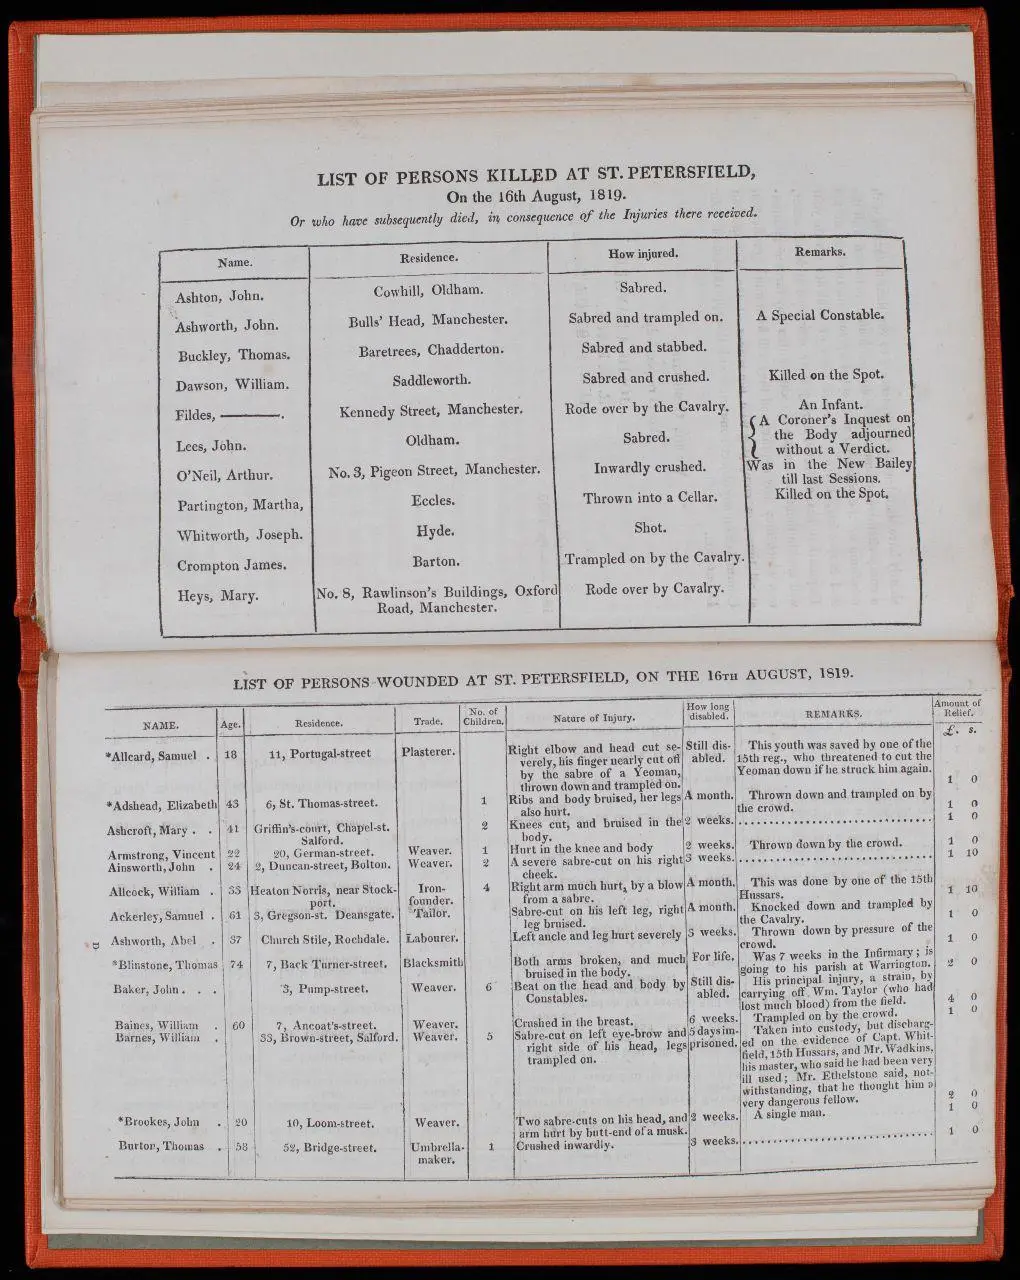 LIST OF PERSONS KILLED AT ST. PETERSFIELD,
On the 16th August, 1819.
Or who have subsequently died, in consequence of the Injuries there received.
Name. Residence. How injured. Remarks.
Ashton, John. Cowhill, Oldham. Sabred.
Ashworth, John. Bulls' Head, Manchester. Sabred and trampled on. A Special Constable.
Buckley, Thomas. Baretrees, Chadderton. Sabred and stabbed.
Dawson, William. Saddleworth. Sabred and crushed. Killed on the Spot.
Fildes, ———. Kennedy Street, Manchester. Rode over by the Cavalry. An Infant.
Lees, John. Oldham. Sabred. { A Coroner's Inquest on
the Body adjourned
without a Verdict.
O'Neil, Arthur. No. 3, Pigeon Street, Manchester. Inwardly crushed. Was in the New Bailey
till last Sessions.
Partington, Martha, Eccles. Thrown into a Cellar. Killed on the Spot.
Whitworth, Joseph. Hyde. Shot.
Crompton James. Barton. Trampled on by the Cavalry.
Heys, Mary. No. 8, Rawlinson's Buildings, Oxford Rode over by Cavalry.
Road, Manchester.
LIST OF PERSONS WOUNDED AT ST. PETERSFIELD, ON THE 16TH AUGUST, 1819.
NAME. Age. Residence. Trade. No. of Children. Nature of Injury. How long disabled. REMARKS. Amount of Relief.
£. s.
*Allcard, Samuel . 18 11, Portugal-street Plasterer. Right elbow and head cut se- Still dis- This youth was saved by one of the
verely, his finger nearly cut off abled. 15th reg., who threatened to cut the
by the sabre of a Yeoman, Yeoman down if he struck him again.
thrown down and trampled on. 1 0
*Adshead, Elizabeth 43 6, St. Thomas-street. 1 Ribs and body bruised, her legs A month. Thrown down and trampled on by
also hurt. the crowd. 1 0
Ashcroft, Mary . . 41 Griffin's-court, Chapel-st. 2 Knees cut, and bruised in the 2 weeks. .............................. 1 0
Salford. body.
Armstrong, Vincent 22 20, German-street. Weaver. 1 Hurt in the knee and body 2 weeks. Thrown down by the crowd. 1 0
Ainsworth, John . 24 2, Duncan-street, Bolton. Weaver. 2 A severe sabre-cut on his right 3 weeks. .............................. 1 10
cheek.
Allcock, William . 33 Heaton Norris, near Stock- Iron- 4 Right arm much hurt, by a blow A month. This was done by one of the 15th
port. founder. from a sabre. Hussars. 1 10
Ackerley, Samuel . 61 3, Gregson-st. Deansgate. Tailor. Sabre-cut on his left leg, right A month. Knocked down and trampled by
leg bruised. the Cavalry. 1 0
Ashworth, Abel . 37 Church Stile, Rochdale. Labourer. Left ancle and leg hurt severely 3 weeks. Thrown down by pressure of the
crowd. 1 0
*Blinstone, Thomas 74 7, Back Turner-street. Blacksmith Both arms broken, and much For life. Was 7 weeks in the Infirmary; is
bruised in the body. going to his parish at Warrington. 2 0
Baker, John . . . 3, Pump-street. Weaver. 6 Beat on the head and body by Still dis- His principal injury, a strain, by
Constables. abled. carrying off Wm. Taylor (who had
lost much blood) from the field. 4 0
Baines, William . 60 7, Ancoat's-street. Weaver. Crushed in the breast. 6 weeks. Trampled on by the crowd. 1 0
Barnes, William . 33, Brown-street, Salford. Weaver. 5 Sabre-cut on left eye-brow and 5 days im- Taken into custody, but discharg-
right side of his head, legs prisoned. ed on the evidence of Capt. Whit-
trampled on. field, 15th Hussars, and Mr. Wadkins,
his master, who said he had been very
ill used; Mr. Ethelstone said, not-
withstanding, that he thought him a
very dangerous fellow. 2 0
*Brookes, John . 20 10, Loom-street. Weaver. Two sabre-cuts on his head, and 2 weeks. A single man. 1 0
arm hurt by butt-end of a musk.
Burton, Thomas . 53 52, Bridge-street. Umbrella- 1 Crushed inwardly. 3 weeks. .............................. 1 0
maker.